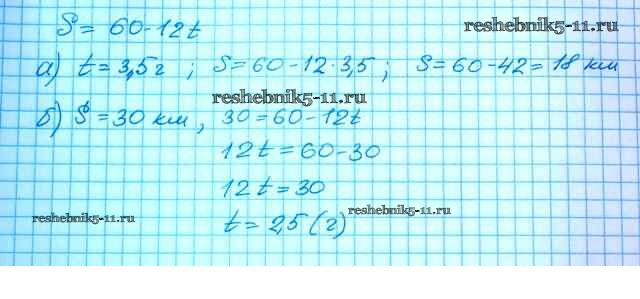 S = 60-12t
reshebnik5-11.ru
а) t = 3,5 г ; S = 60 - 12 · 3,5 ; S = 60 - 42 = 18 км
reshebnik5-11.ru
б) S = 30 км, 30 = 60 - 12t
12t = 60 - 30
12t = 30
reshebnik5-11.ru
reshebnik5-11.ru
t = 2,5 (г)